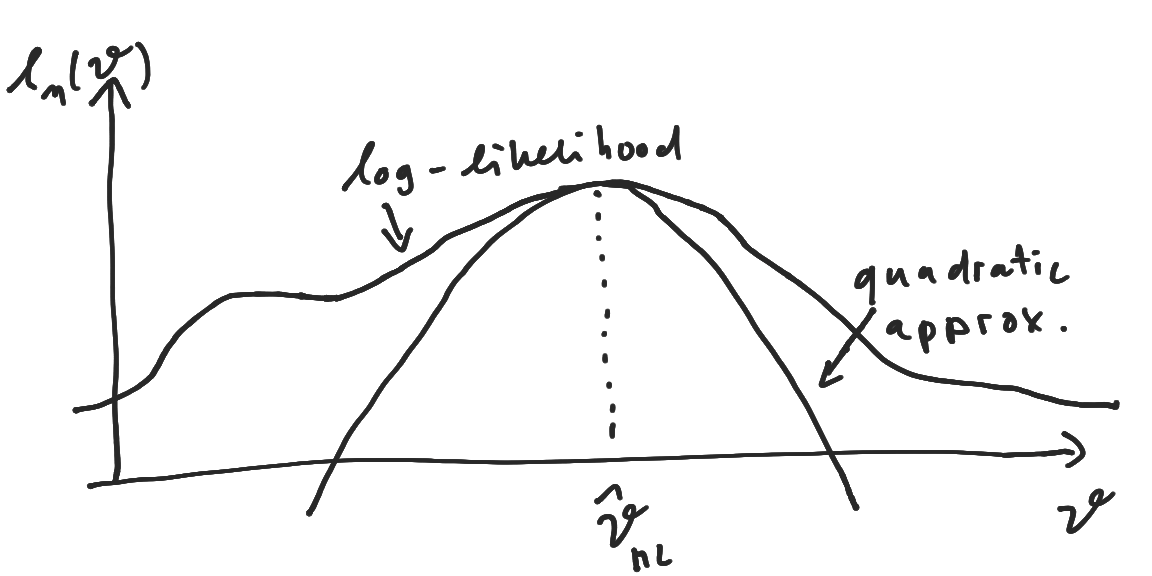 lₙ(ϑ)
log-likelihood
quadratic
approx.
ϑ̂ML
ϑ